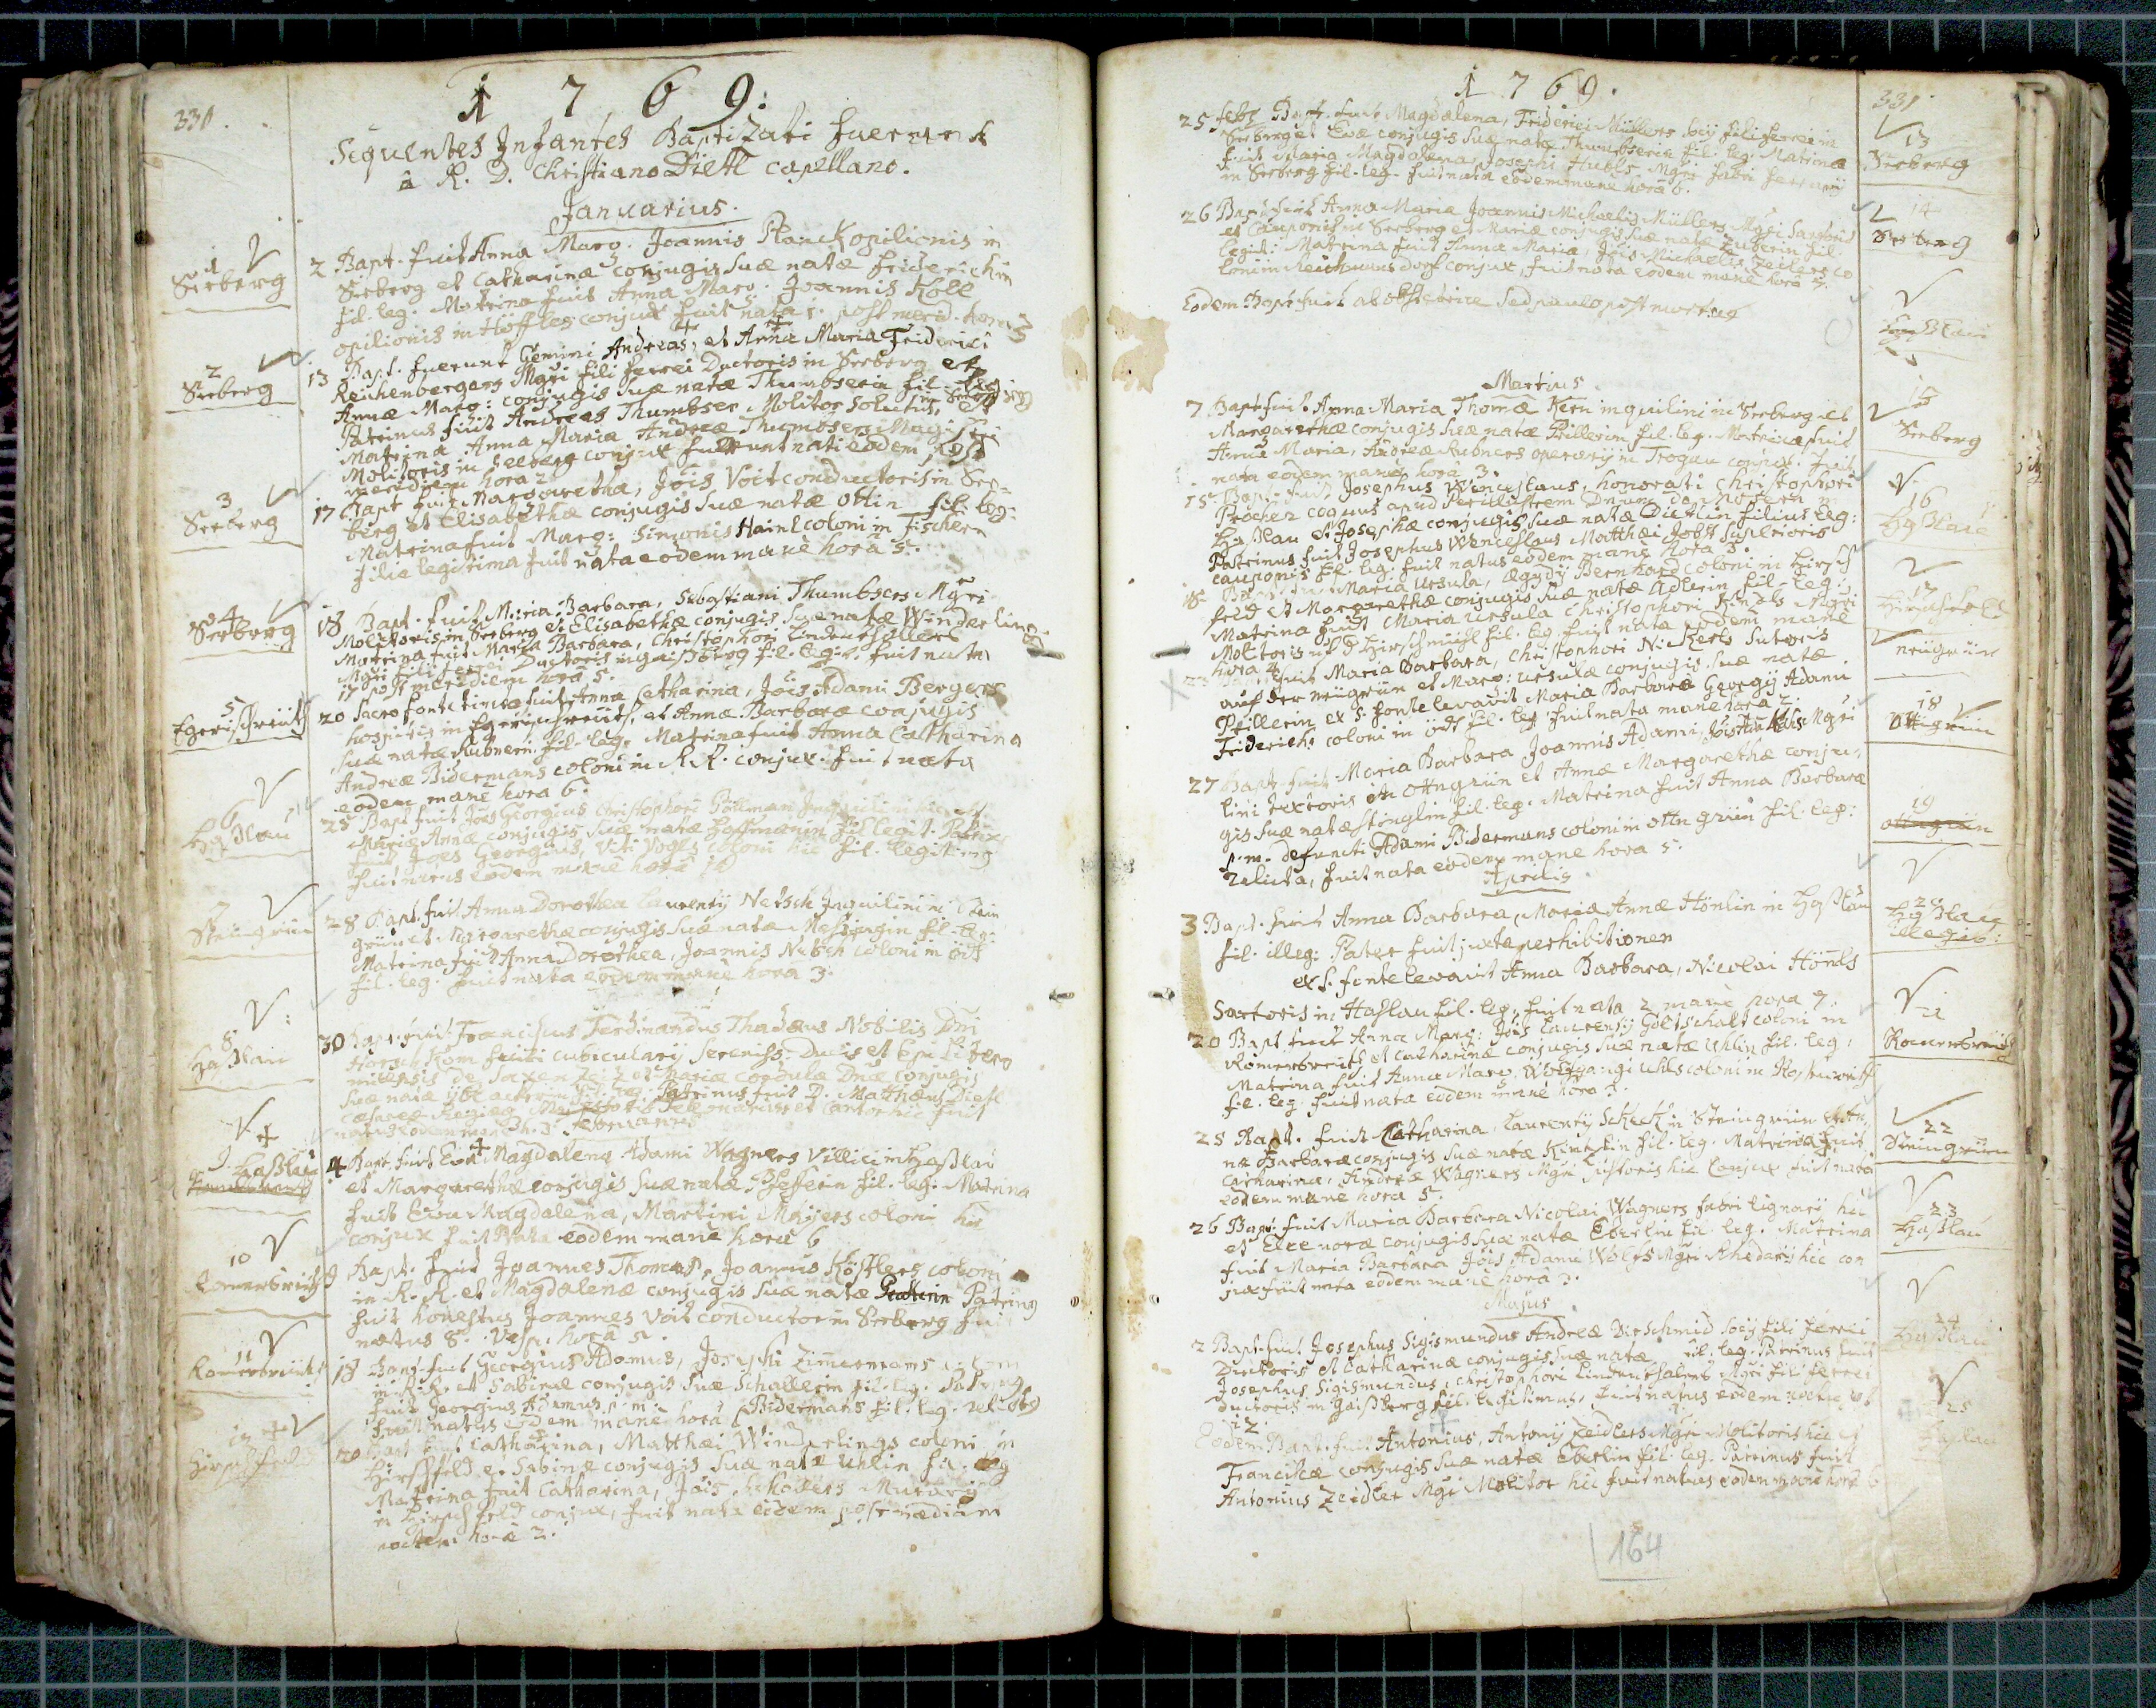 330.
1 7 6 9.
Sequentes Infantes Baptizati fuerunt
â R. D. Christiano Dietl Capellano.
Januarius.
1
Seeberg
2 Bapt. fuit Anna Marg. Joannis Planck opilionis in
Seeberg et Catharinæ conjugis suæ natæ friderichin
fil. leg. Matrina fuit Anna Marg. Joannis Köll
opilionis in Höfflas conjux fuit nata 1. post merid. hora 3
2
Seeberg
13 Bapt. fuerunt Gemini Andreas, et Anna Maria Friderici
Reichenbergers Mgri fili ferrei Ductoris in Seeberg et
Annæ Marg: conjugis suæ natæ Thumbserin fil. leg:
Patrinus fuit Andreas Thumbser Molitor solutus, et
Matrina Anna Maria Andreæ Thumbsers Magistri
Molitoris in Seeberg conjux fuerunt nati eodem post
meridiem hora 2
3
Seeberg
17 Bapt fuit Margaretha, Jois Voit conductoris in See-
berg et Elisabethæ conjugis suæ natæ Ottin fil. leg:
Matrina fuit Marg: Simonis Hainl coloni in Fischern
filia legitima fuit nata eodem mane hora 5.
4
Seeberg
18 Bapt. fuit Maria Barbara, Sebastiani Thumbsers Mgri
Molitoris in Seeberg et Elisabethæ conjugis suæ natæ Winderling
Matrina fuit Maria Barbara, Christophori Lindenthallers
Mgri fili ferrei Ductoris in gaisberg fil. leg. fuit nata
17 post meridiem hora 5.
5
Egerischreüth
20 Sacro fonte tincta fuit Anna Catharina, Jois Adami Bergers
hospitis in Egerischreüth, et Annæ Barbaræ conjugis
suæ natæ Rubnerin fil. leg. Matrina fuit Anna Catharina
Andreæ Bidermans coloni in R.R. conjux. fuit nata
eodem mane hora 6.
6
Haßlau
25 Bapt fuit Jois Georgius Christophori Inquilini hic et
Mariæ Annæ conjugis suæ natæ Hoffmanin fil legit.
fuit Joes Georgius, Viti Vogls coloni hic fil. legitimus
fuit natus eodem mane hora
7
Steingrün
28 Bapt. fuit Anna Dorothea Laurentij Netsch Inquilini in Stein
grün et Margarethæ conjugis suæ natæ fil. leg.
Matrina fuit Anna Dorothea, Joannis Netsch coloni in öth
fil. leg. fuit nata eodem mane hora 3.
8
Haßlau
30 Bapt. fuit Franciscus Ferdinandus Thadæus Nobilis Dni
cubicularij Sereniss. Ducis et Epi
de Saxen Zeitz et Mariæ Dnæ Conjugis
suæ natæ fil. leg. Patrinus fuit D. Matthæus Dietl
fuit
natus eodem
9
Haßlau
4 Bapt. fuit Eva Magdalena Adami Wagners Villici in Haßlau
et Margarethæ conjugis suæ natæ fil. leg. Matrina
fuit Eva Magdalena, Martini Mayers coloni hic
conjux fuit nata eodem mane hora 6
10
Romersreith
9 Bapt. fuit Joannes Thomas, Joannis Köstlers coloni
in R. R. et Magdalenæ conjugis suæ natæ Patrinus
fuit honestus Joannes Voit conductor in Seeberg fuit
natus 8. vesp. hora 5.
11
Romersreuth
18 Bapt. fuit Georgius Adamus, Josephi Zimermans
in R.R. et Sabinæ conjugis suæ Schallerin fil. leg.
fuit Georgius Adamus p. m. Bidermans fil. leg. relictus
fuit natus eodem mane hora
12
Hirschfeld
20 Bapt fuit Catharina, Matthæi Winderlings coloni in
Hirschfeld et Sabinæ conjugis suæ natæ Uhlin fil. leg
Matrina fuit Catharina, Jois Schallers Murarij
in Hirschfeld conjux, fuit nata eodem post mediam
noctem hora 2.
1769.
331.
13
Seeberg
25 febr Bapt. fuit Magdalena, Friderici Müllers socij fili ferrei in
Seeberg et Evæ conjugis suæ natæ Thumbserin fil. leg. Matrina
fuit Maria Magdalena, Josephi Mgri fabri ferrarij
in Seeberg fil. leg. fuit nata eodem mane hora 6.
14
Seeberg
26 Bapt fuit Anna Maria Joannis Michaelis Müllers Mgri Sartoris
et Cauponis in Seeberg et Mariæ conjugis suæ natæ fil
legit: Matrina fuit Anna Maria, Jois Michaelis Zeidlers co
loni in Reichmansdorf conjux, fuit nata eodem mane hora
Haßlau
Eodem Bapt fuit ab obstetrice sed paulo post mortuus
Martius.
15
Seeberg
7 Bapt. fuit Anna Maria Thomæ Kern inquilini in Seeberg et
Margarethæ conjugis suæ natæ Prillerin fil. leg. Matrina fuit
Anna Maria, Andreæ Rubners operarij in Trogau conjux. fuit
nata eodem mane hora 3.
16
Haßlau
15 Bapt. fuit Josephus Wenceslaus, honorati Christophori
Procher coquus apud Perillustrem Dnum de in
Haßlau et Josephæ conjugis suæ natæ Dietlin filius leg:
Patrinus fuit Josephus Wenceslaus Matthæi Jobst superioris
cauponis fil. leg. fuit natus eodem mane hora 3.
17
Hirschfeld
18 Maria Ursula, Ægydij Bernhard coloni in Hirsch
feld et Margarethæ conjugis suæ natæ Adlerin fil. leg:
Matrina fuit Maria Ursula Christophori Künzls Mgri
Molitoris auf d Hirschmühl fil. leg fuit nata eodem mane
hora 4
neügrün
fuit Maria Barbara, Christophori Nikerls Sutoris
auf der neügrün et Marg: Ursulæ conjugis suæ natæ
Prillerin ex S. fonte levavit Maria Barbara Georgij Adami
Friderich coloni in öth fil. leg fuit nata mane hora 2.
18
Ottngrün
27 Bapt fuit Maria Barbara Joannis Adami,
lini textoris in Ottngrün et Annæ Margarethæ conju-
gis suæ natæ Stinglin fil. leg. Matrina fuit Anna Barbara
p.m. defuncti Adami Bidermans coloni in Ottngrün fil. leg:
relicta, fuit nata eodem mane hora 5.
19
ottngrün
Aprilis.
20
Haßlau
illegit:
3 Bapt. fuit Anna Barbara, Maria Annæ Hönlin in Haßlau
fil. illeg: Pater fuit juxta perhibitionem
ex S. fonte levavit Anna Barbara, Nicolai Hönls
Sartoris in Haslau fil. leg. fuit nata 2 mane hora 9.
21
Romersreuth
20 Bapt fuit Anna Marg: Jois Laurentij Goltschalt coloni in
Römersreith et Catharinæ conjugis suæ natæ Uhlin fil. leg.
Matrina fuit Anna Marg. Wolfgangi Uhls coloni in
fil. leg. fuit nata eodem mane hora 3.
22
Steingrün
25 Bapt. fuit Catharina, Laurentij Scheck in Steingrün
næ Barbaræ conjugis suæ natæ fil. leg. Matrina fuit
Catharina, Andreæ Wagners Mgri pistoris hic Conjux fuit nata
eodem mane hora 5.
23
Haßlau
26 Bapt. fuit Maria Barbara Nicolai Wagners fabri lignarij hic
et Eleonoræ conjugis suæ natæ Eberlin fil. leg. Matrina
fuit Maria Barbara Jois Adami Wolfs Mgri Rhedarij hic con
jux fuit nata eodem mane hora 3.
Majus
24
Haßlau
2 Bapt. fuit Josephus Sigismundus Andreæ Dirschmid socij fili ferrei
Ductoris et Catharinæ conjugis suæ natæ fil. leg. Patrinus fuit
Josephus Sigismundus, Christophori Lindenthalers Mgri fili ferrei
ductoris in Gaißberg fil. legitimus, fuit natus eodem
12.
25
Haßlau
Eodem Bapt. fuit Antonius, Antonij Zeidlers Mgri Molitoris hic et
Franciscæ conjugis suæ natæ Eberlin fil. leg. Patrinus fuit
Antonius Zeidler Mgr Molitor hic fuit natus eodem mane hora 6
164